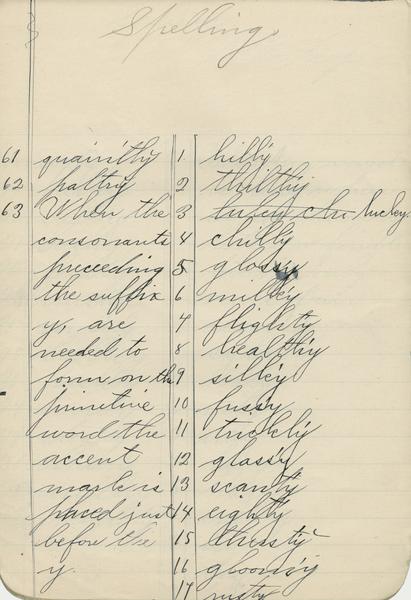 Spelling
61 quaintly
62 paltry
63 When the
consonants
preceeding
the suffix
y, are
needed to
form on the
primitive
word the
accent
mark is
placed just
before the
y.
1 hilly
2 thilthy
3 luckey
4 chilly
5 glossy
6 milkey
7 flighty
8 healthiy
9 silkey
10 fussy
11 trickly
12 glassy
13 scanty
14 eighty
15 thirsty
16 gloomiy
17 rusty